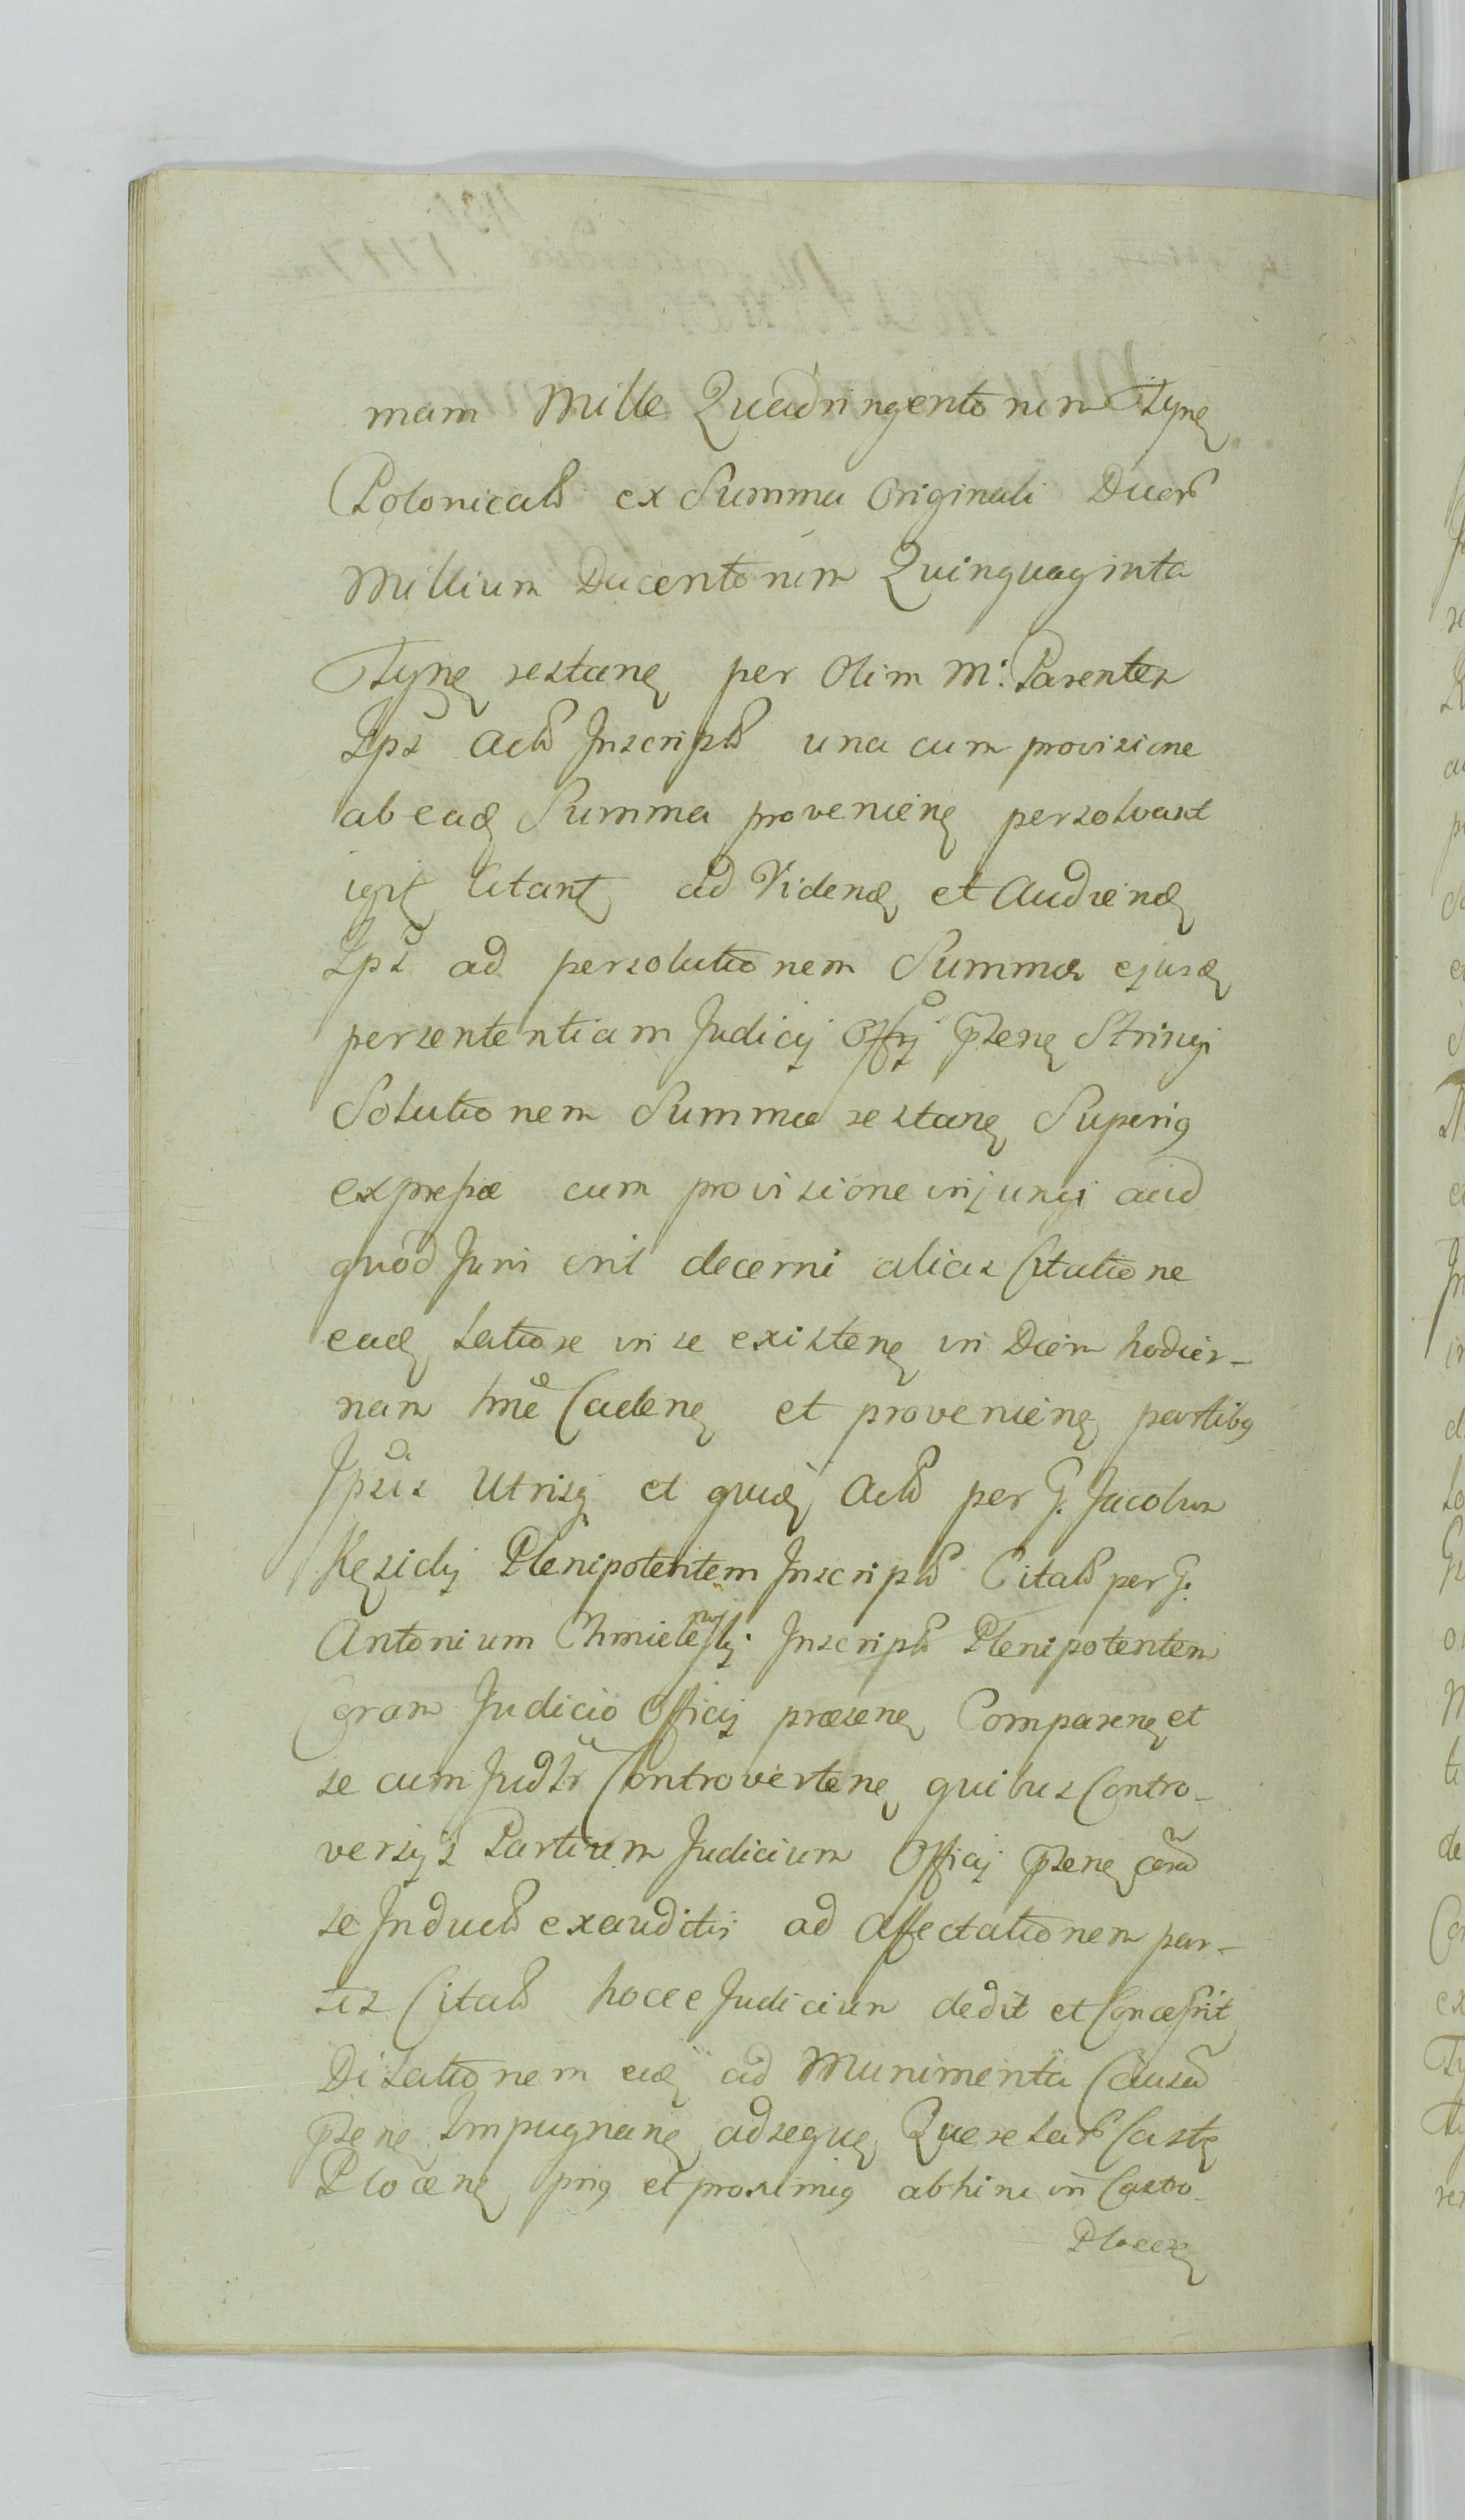 mam Mille Quadringentorum Tynę
Polonicalꝭ ex Summa Originali Duorꝭ
Millium Ducentorum Quinquaginta
Tynę restanę per Olim M: Parentes
Ips Actꝭ Inscriptꝭ una cum provisione
ab eadę Summa provenienę persolvant
igit Citantę ad Videndę et Audiendę
Ips ad persolutionem Summæ ejusdę
per sententiam Judicij Offij psenę Stringi
Solutionem Summæ restanę Superig
expressæ cum provisione injungi aid
quod Juri erit decerni alias Citatione
eadę Latiore in se existenę in Diem hodier-
nam tme Cadenę et provenienę partibg
Ipsis Utrisqę et quidę Actꝭ per G. Jacobum
Kęsicki Plenipotentem Inscriptꝭ Citatꝭ per G.
Antonium Chmielewski Inscriptꝭ Plenipotentem
Coram Judicio Officij præsenę Comparenę et
se cum Judtr Controvertenę quibus Contro-
versijs Partium Judicium Officij psenę cora
se Inductꝭ exauditis ad Affectationem par-
tis Citatꝭ hocce Judicium dedit et Concessit
Dilationem eidę ad Munimenta Causa
psenę Impugnanę adseque Querelarꝭ Castrę
Plocenę prig et proximig abhinc in Castro
Plocenę